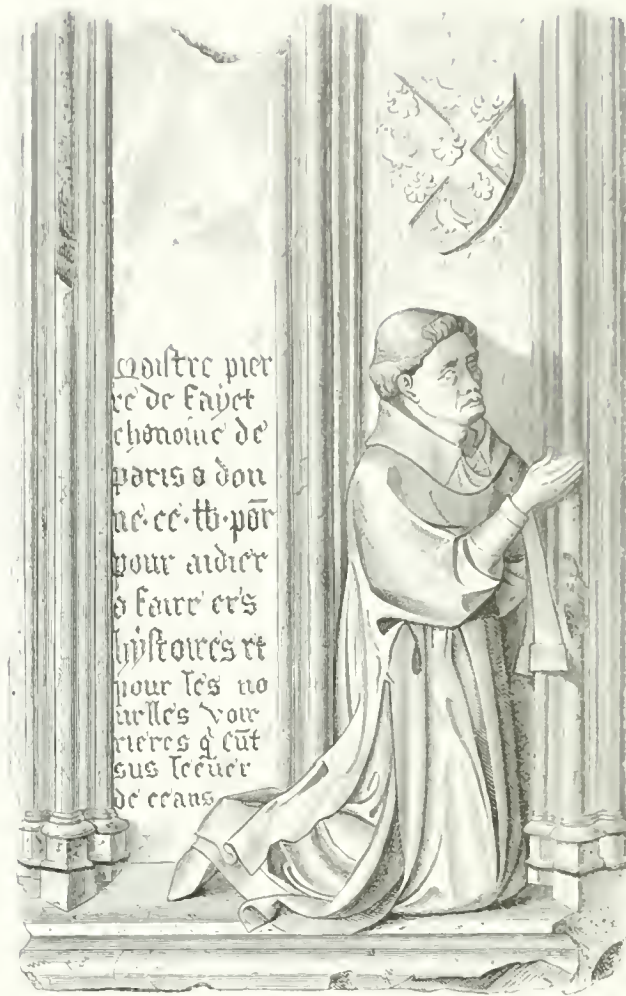 maistre pier
re de fayet
chanoine de
paris a don
ne . cc . lb . por̄
pour aidier
a faire ces
hystoires et
pour les no
uelles voir
rieres q̄ sūt
sus le cuer
de ceans